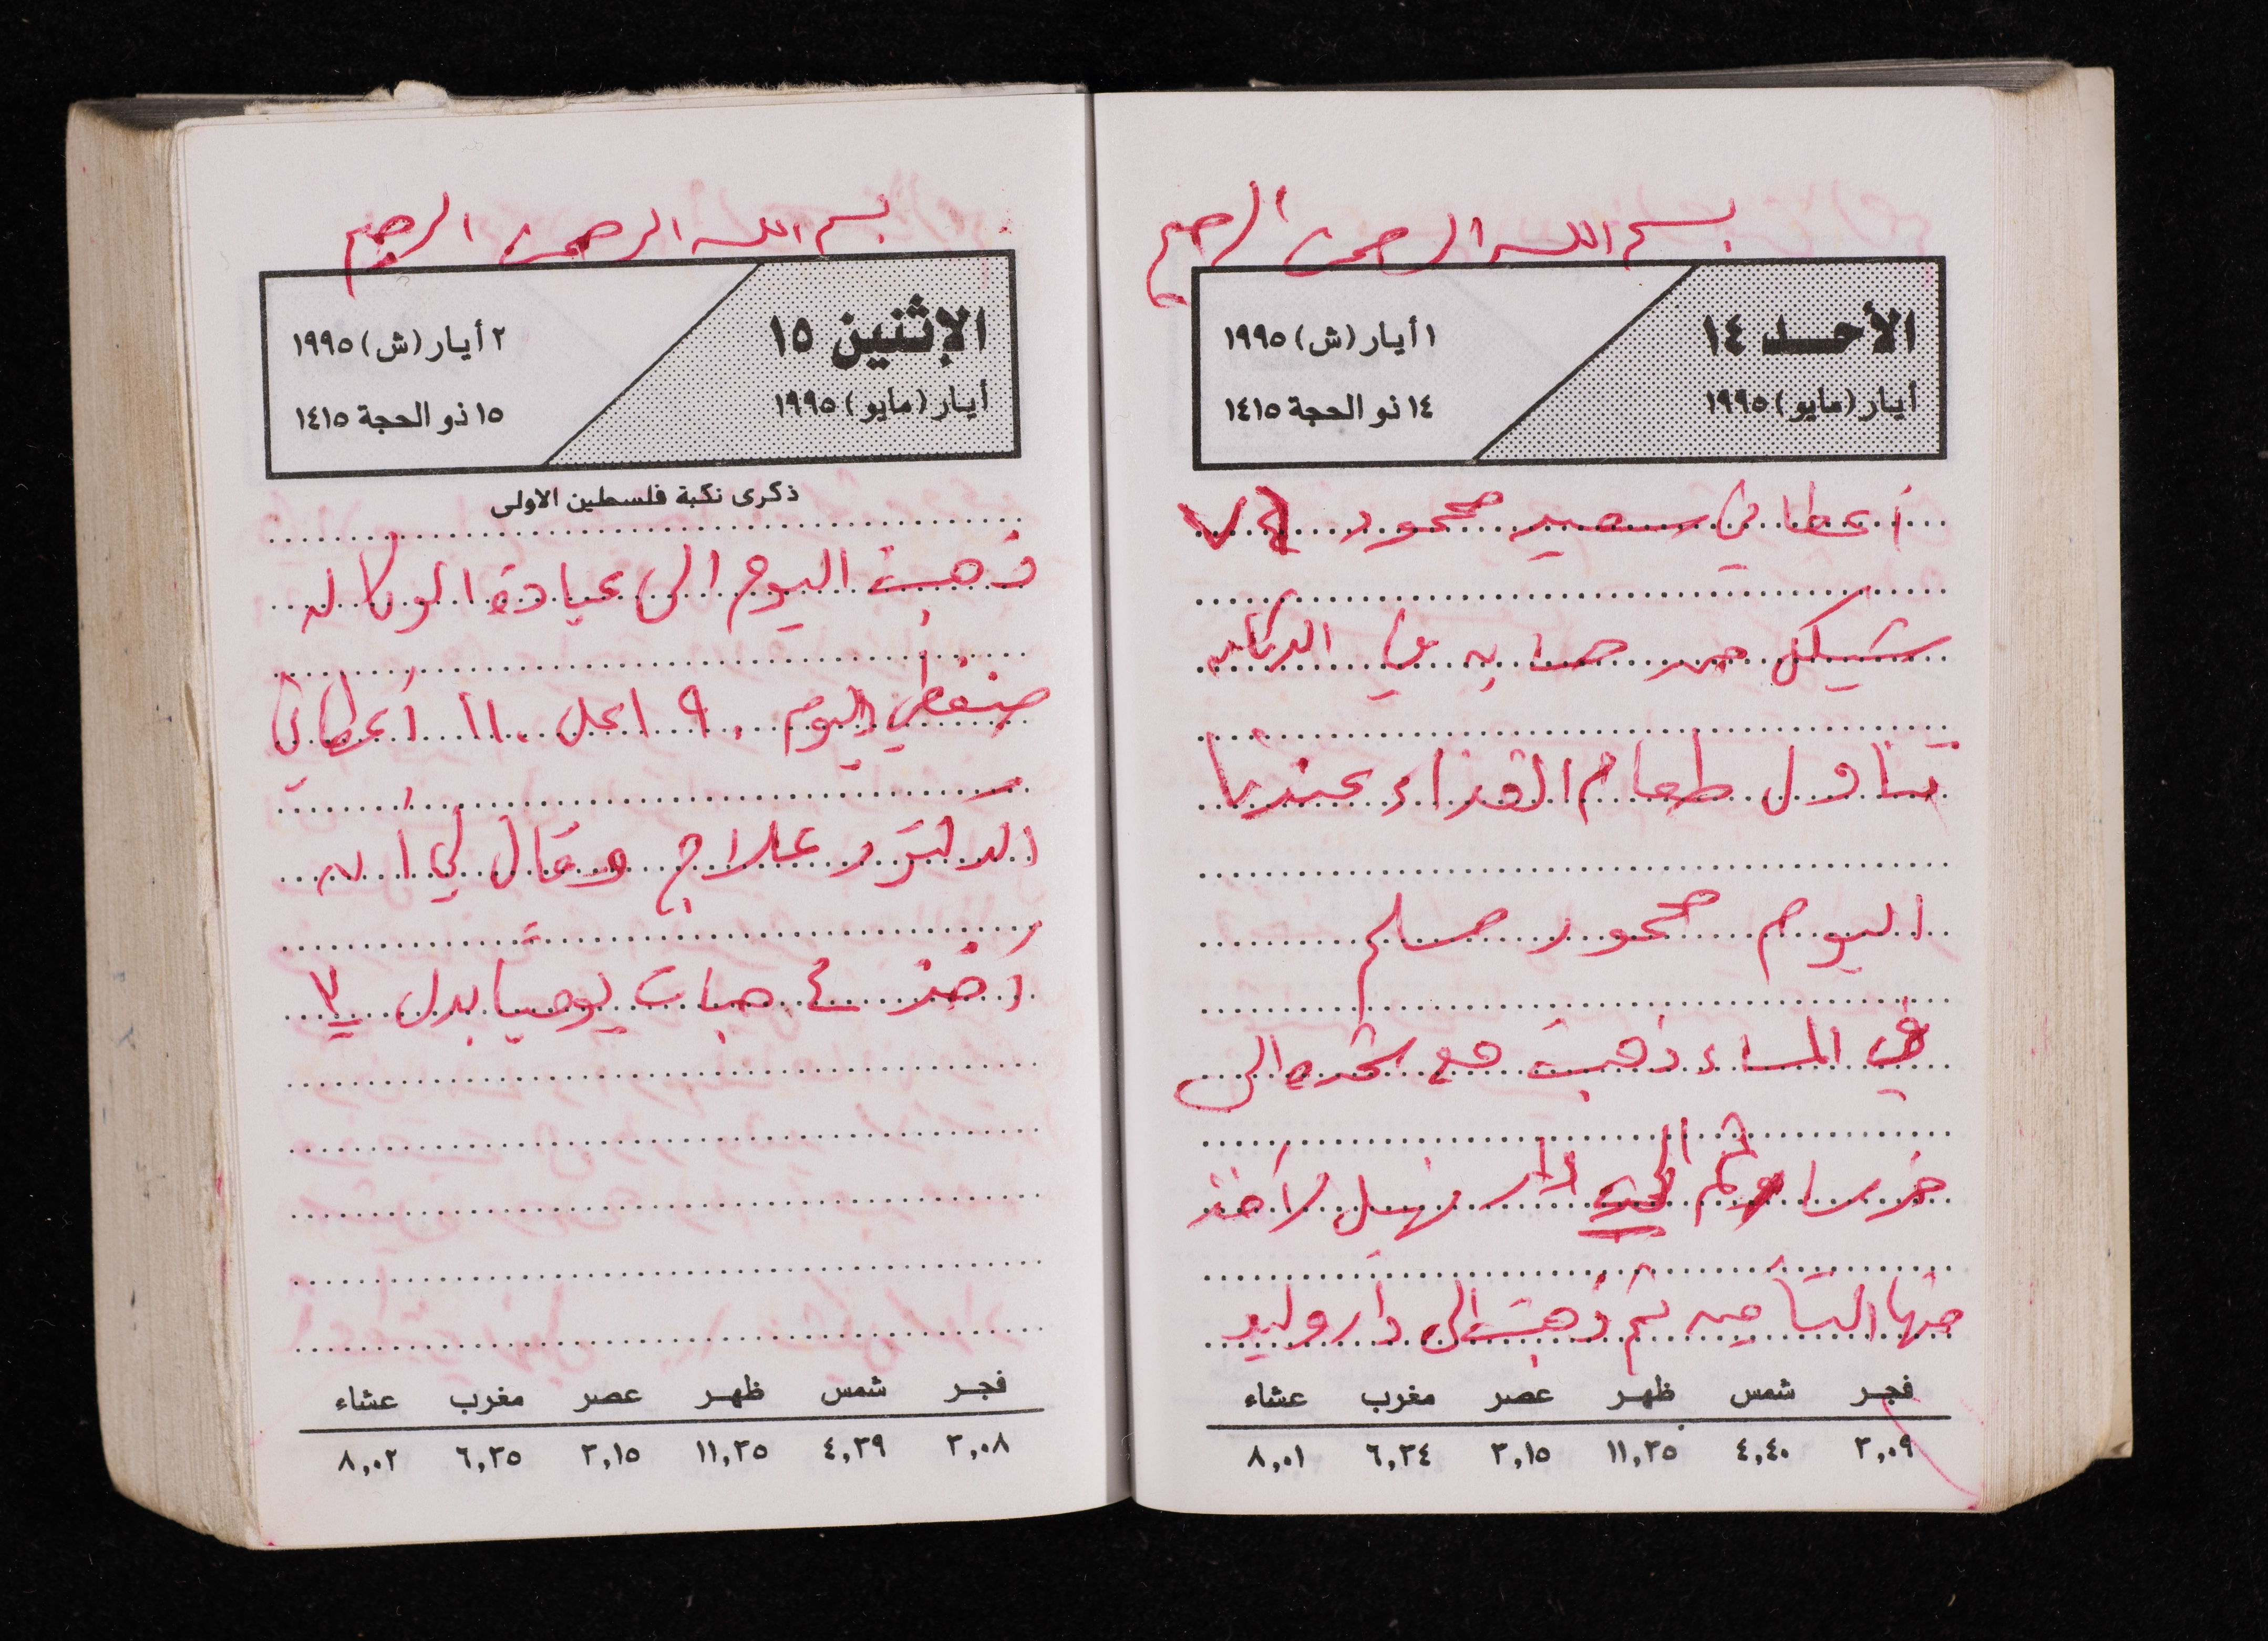 بسم الله الرحمن الرحيم
الأحد ١٤
أيار (مايو) ١٩٩٥
١ أيار (ش) ١٩٩٥
١٤ ذو الحجة ١٤١٥
أعطاني سعيد محمود
شيكل من حسابه في الدكانه
تناول طعام الغذاء عندنا
اليوم محمود مسلم
في المساء ذهبت مع شحده الى
ثم الى دار نهيل لآخذ
منها التأمين ثم ذهبت الى دار وليد
فجر شمس ظهر عصر مغرب عشاء
٣,٠٩ ٤,٤٠ ١١,٣٥ ٣,١٥ ٦,٣٤ ٨,٠١
بسم الله الرحمن الرحيم
الإثنين ١٥
أيار (مايو) ١٩٩٥
٢ أيار (ش) ١٩٩٥
١٥ ذو الحجة ١٤١٥
ذكرى نكبة فلسطين الاولى
ذهبت اليوم الى عيادة الوكاله
ضغطي اليوم ٩٠ اعلى ١١٠ أعطاني
الدكتور علاج وقال لي أن
آخذ ٤ حبات يوميا بدل ٣
فجر شمس ظهر عصر مغرب عشاء
٣,٠٨ ٤,٣٩ ١١,٣٥ ٣,١٥ ٦,٣٥ ٨,٠٢